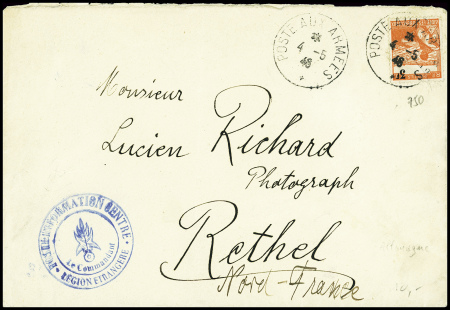 POSTE AUX ARMEES
4 -5
46
POSTE AUX
4 -5
46
750
Monsieur
Lucien Richard
Photograph
Rethel
Nord-Franse
CENTRE
Le Commandant
LÉGION ÉTRANGÈRE